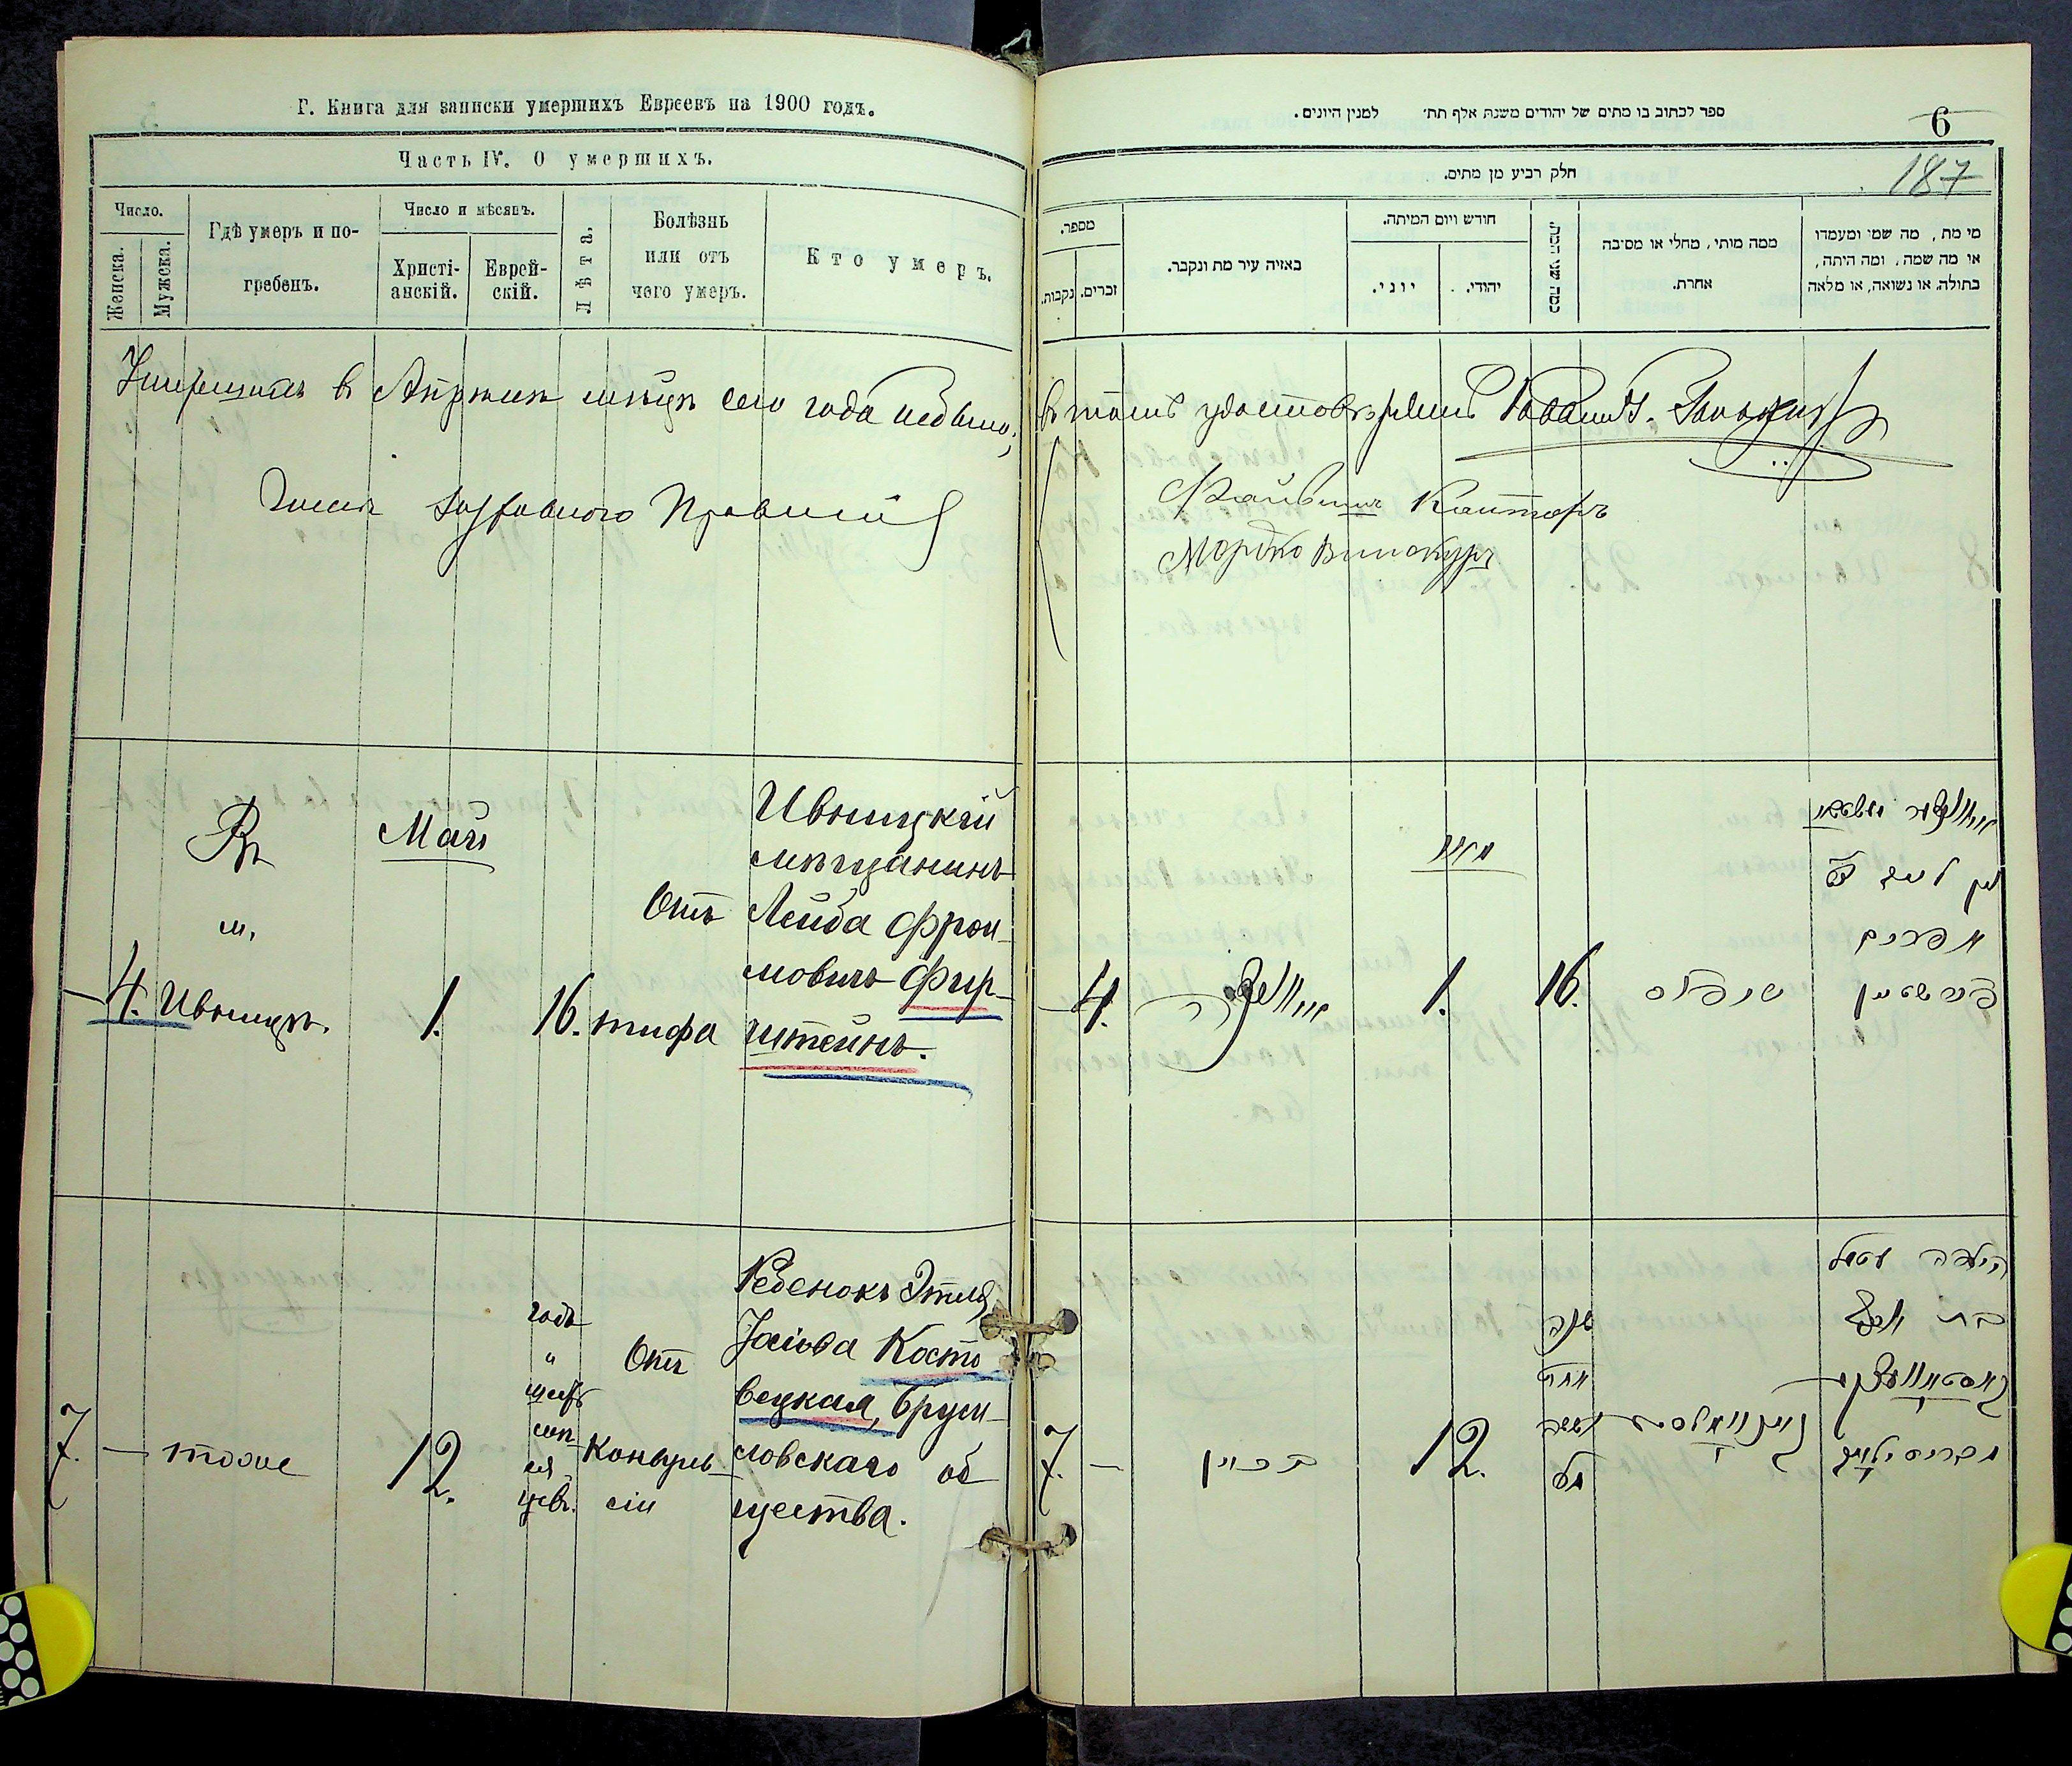 Г. Книга для записки умершихъ Евреевъ на 1900 годъ.
Часть IV. О умершихъ.
Число.
Женска.
Мужска.
Гдѣ умеръ и по-
гребенъ.
Число и мѣсяцъ.
Христі-
анскій.
Еврей-
скій.
Лѣта.
Болѣзнь
или отъ
чего умеръ.
Кто умеръ.
Умершихъ в Апрѣлѣ мѣсяцѣ сего года не было,
Члены Духовного Правленія
Въ
м.
Ивницѣ.
4.
Май
1.
16.
Отъ
тифа
Ивницкій
мѣщанинъ
Лейба Фрои-
мовичъ Фир-
штейнъ.
7.
тоже
12.
годъ
и
шесть
мѣ-
ся-
цевъ.
Отъ
Конвуль-
сіи
Ребенокъ Этля
Іосіова Косто
вецкая, Бруси-
ловскаго об
щества.
ספר לכתוב בו מתים של יהודים משנת אלף תת׳ למנין היונים.
6
187
חלק רביע מן מתים.
מספר.
נקבות.
זכרים.
באיזה עיר מת ונקבר.
חודש ויום המיתה.
יוני.
יהודי.
ממה מותי, מחלי או מסיבה
אחרת.
מי מת, מה שמו ומעמדו
או מה שמה, ומה היתה,
בתולה, או נשואה, או מלאה
в томъ удостовѣряемъ Раввинъ
Файвишъ Канторъ
Мордко Винокуръ
4.
1.
16.
מאי
טיפוס
אפרים
פירשטיין
7.
12.
שנה
אחת
וששה
הילדה עטיל
בת